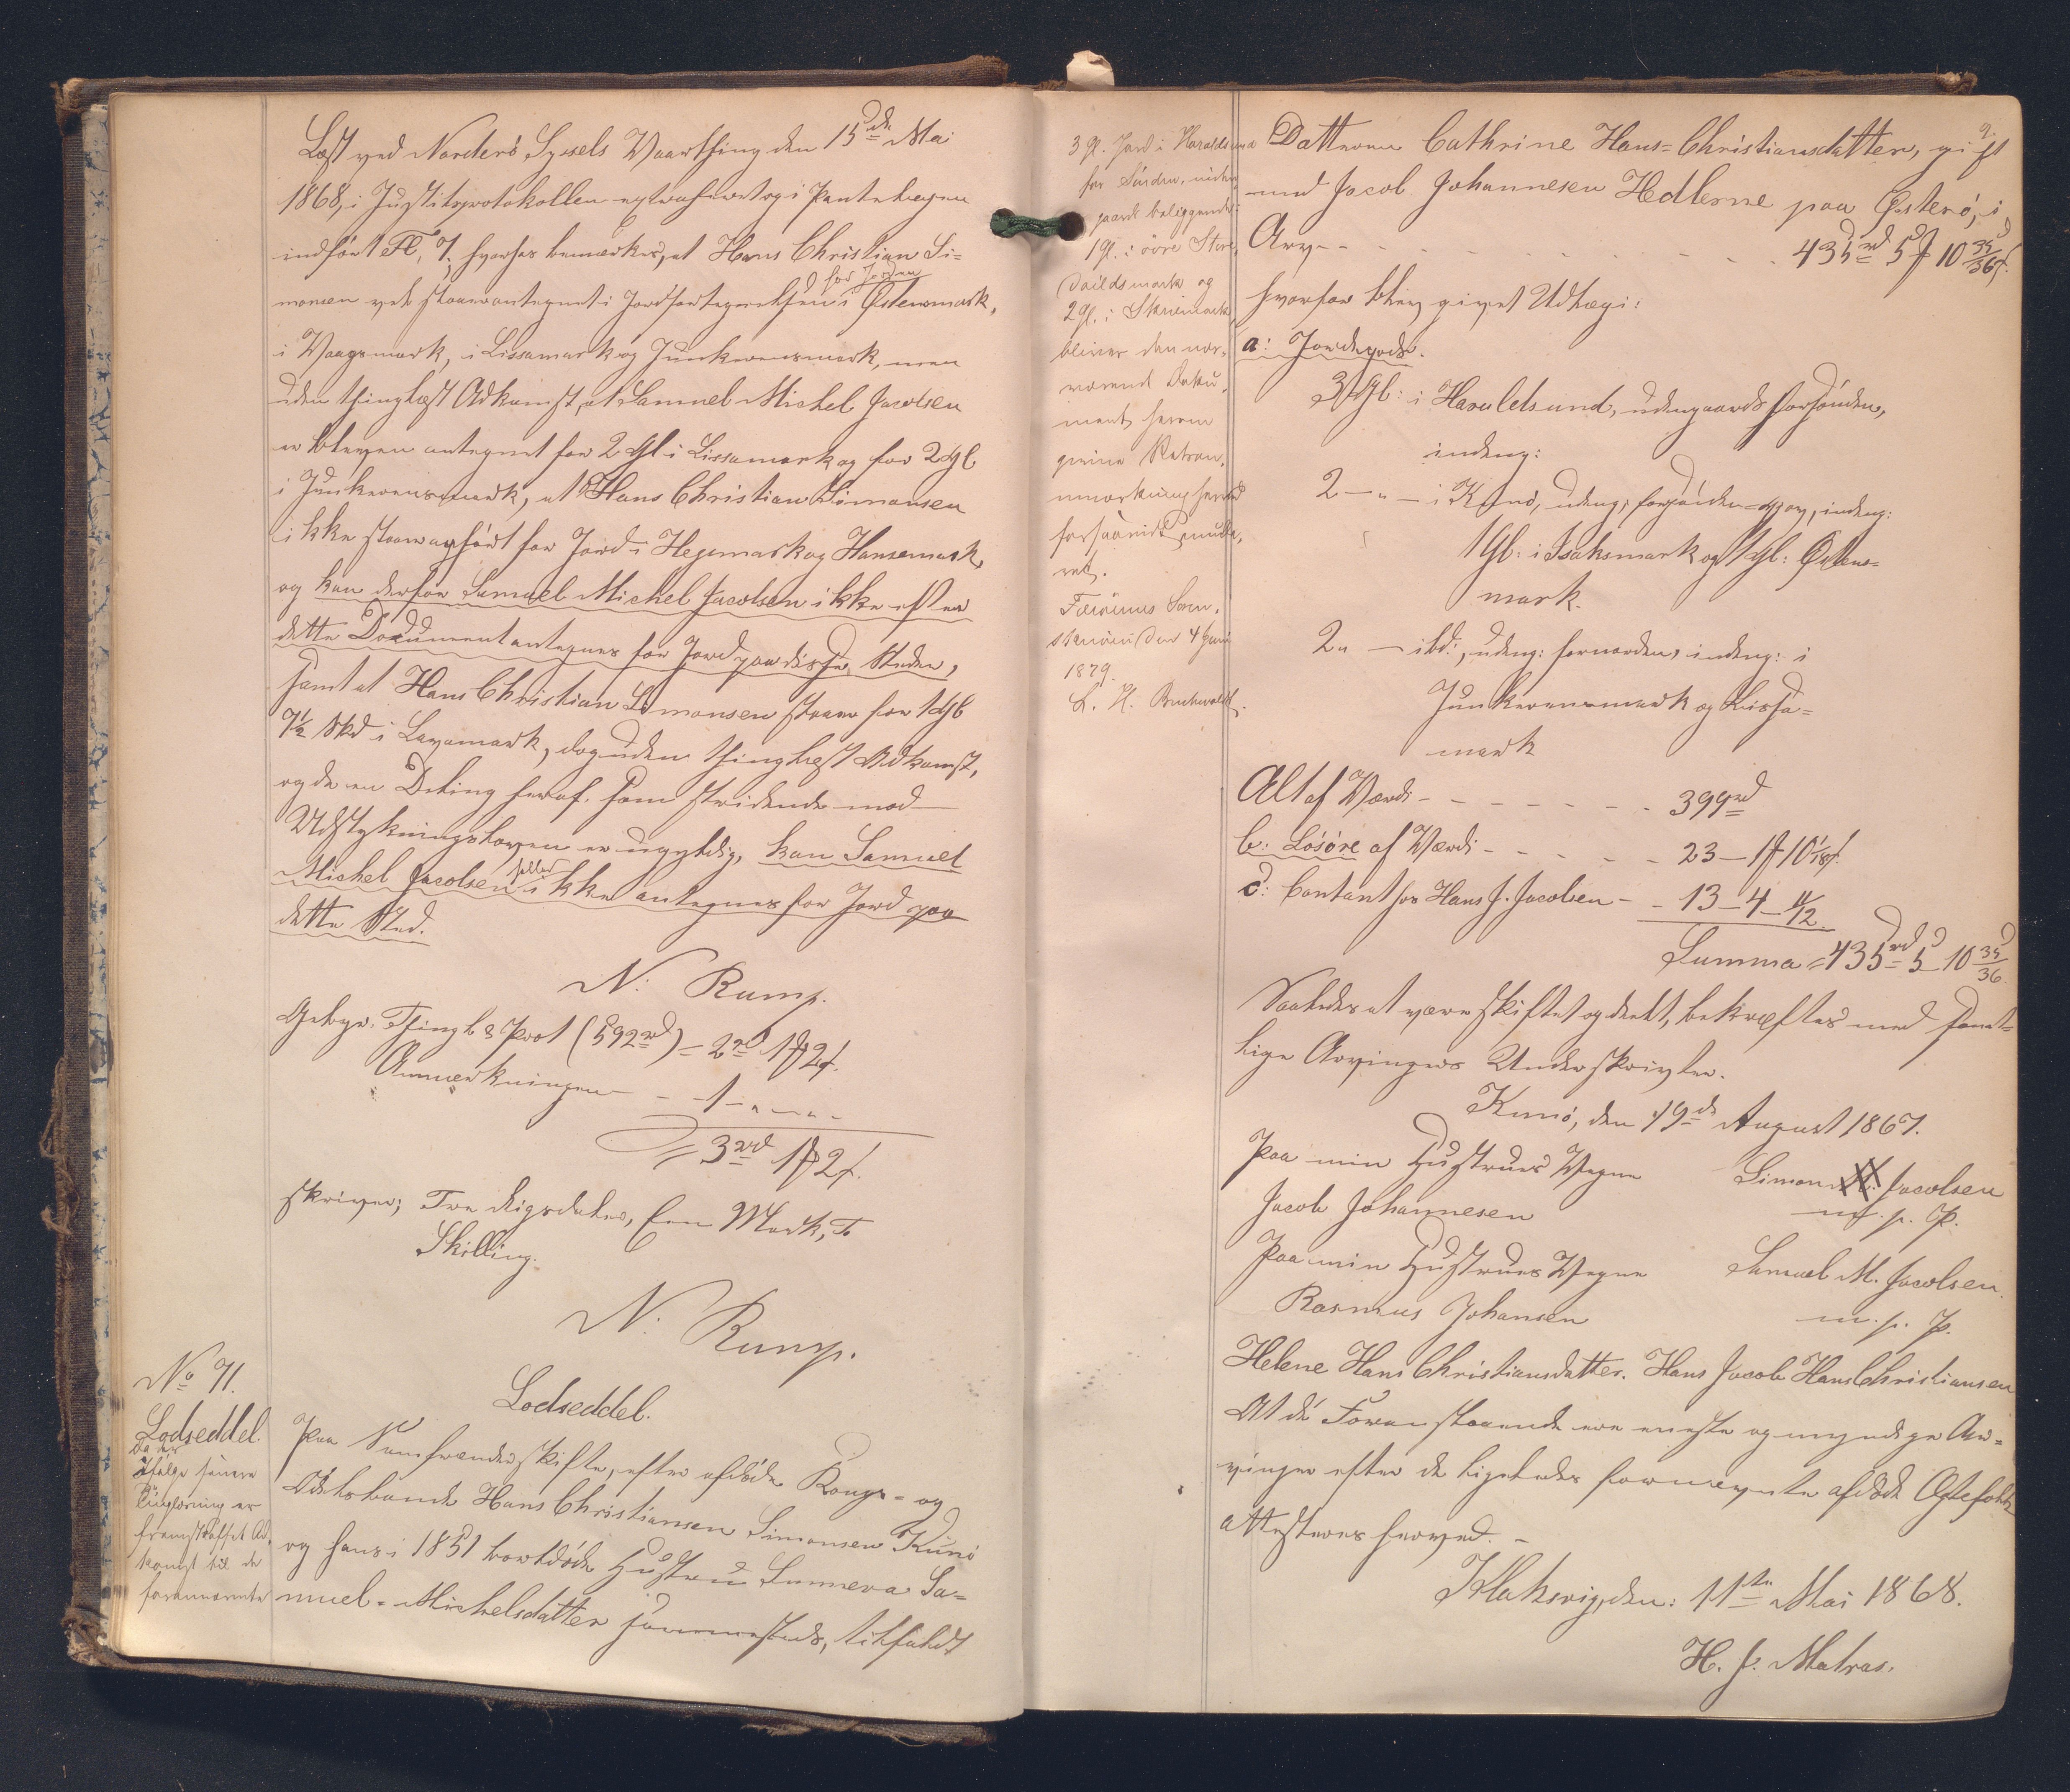 Læst ved Norderö Syssels Vaarthing den 15de Mai
1868, i Justitsprotokollen extraheret og i Pantebogen
indført Fol. 7, hvorhos bemærkes, at Hans Christian Si=
monsen vel staaer antegnet i Jordfortegnelsen for Jorden i Østensmark,
i Vaagsmark, i Lissamark og Junkerensmark, men
uden thinglæst Adkomst, at Samuel Michel Jacobsen
er bleven antegnet for 2 Gl i Lissamark og for 2 Gl.
i Junkerensmark, at Hans Christian Simonsen
ikke staaer opført for Jord i Hegemark og Hansemark,
og kan derfor Samuel Michel Jacobsen ikke efter
dette Document antegnes for Jord paa disse Steder,
samt at Hans Christian Simonsen staaer for 1 Gl
7½ Skd i Lagamark, dog uden thinglæst Adkomst,
og da en Deling heraf som stridende mod
Udstykningsloven er ugyldig, kan Samuel
Michel Jacobsen heller ikke antegnes for Jord paa
dette Sted.
N. Rump.
Gebyr. Thingl & Prot (592 rd) = 2 rd 1 ₻ 2 ß.
Anmærkningen - - 1 - " - " -
= 3 rd 1 ₻ 2 ß.
skriver; Tre Rigsdaler, Een Mark, To
Skilling.
N. Rump.
No 71.
Lodseddel.
Da der
Ifølge senere
Tinglæsning er
fremskaffet Ad,
komst til de
forannævnte
Lodseddel.
Paa Samfrændeskifte, efter afdøde Konge- og
Odelsbonde Hans Christiansen Simonsen Kunö
og hans i 1851 bortdøde Hustru Sunneva Sa=
muel-Michelsdatter sammesteds, tilfaldt
3 Gl. Jord i Haraldsund
for Sönden, inden,
gaards beliggende:
1 Gl. i övre Store
Daildsmark og
2 Gl. i Skriemark,
bliver den nær,
værende Doku,
ment herom
givne Retsan,
mærkning herved
forsaavidt mode,
ret.
Færöernes Soren,
skriveri den 4 Juni
1879.
L. H. Buchwaldt.
9.
Datteren Cathrine Hans=Christiansdatter, gift
med Jacob Johannesen Hedlerne paa Österö, i
Arv - - - - - - - - - 435 rd 5 ₻ 10 35/36 ß.
hvorfor blev givet Udlæg i:
a: Jordegods.
3 Gl: i Haraldsund, udengaards forsönden,
indeng:
2 — " — i Kunö, udeng: forsönden = , indeng:
1 Gl: i Isaksmark og 1 Gl: Östens=
mark.
2 " — ibd:, udeng: fornorden, indeng: i
Junkerensmark og Lissa=
mark
Alt af Værdi - - - - - - - 399 rd
b: Lösöre af Værdi - - - - - 23 — 1 ₻ 10 1/18 ß.
c: Contant hos Hans J. Jacobsen - - 13 — 4 — 11/12.
Summa = 435 rd 5 — 10 35/36.
Saaledes at være skiftet og deelt, bekræftes med samt=
lige Arvingers Underskrivter.
Kunö, den 19de August 1867.
Paa min Hustrues Vegne Simon Jacobsen
Jacob Johannesen m. p. P.
Paa min Hustrues Vegne Samuel M. Jacobsen.
Rasmus Johansen m. p. P.
Helene Hans Christiansdatter. Hans Jacob Hans Christiansen
At de Foranstaaende ere eneste og myndige Ar=
vinger efter de ligeledes fornævnte afdøde Ægtefolk
attesteres herved. -
Klaksvig, den: 11te Mai 1868.
H. J. Matras.